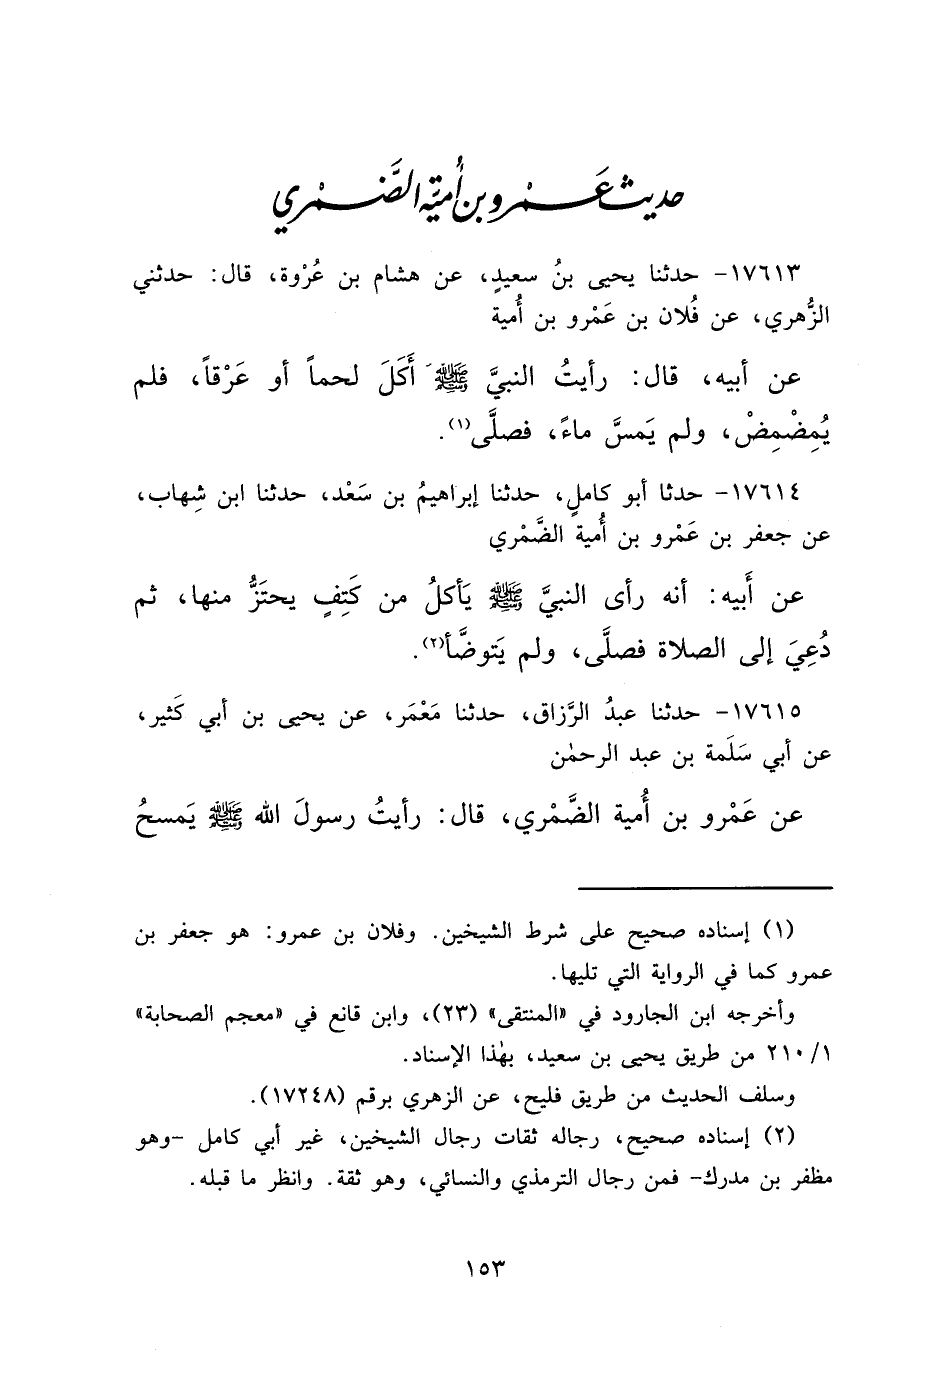 حديث عَمْرو بن أُميّة الضَّمْري
١٧٦١٣- حدثنا يحيى بنُ سعيدٍ، عن هشام بن عُرْوة، قال: حدثني
الزُّهري، عن فُلان بن عَمْرو بن أُمية
عن أبيه، قال: رأيتُ النبيَّ ﷺ أَكَلَ لحماً أو عَرْقاً، فلم
يُمِضْمِضْ، ولم يَمسَّ ماءً، فصلَّى(١).
١٧٦١٤- حدثا أبو كاملٍ، حدثنا إبراهيمُ بن سَعْد، حدثنا ابن شِهاب،
عن جعفر بن عَمْرو بن أُمية الضَّمْري
عن أَبيه: أنه رأى النبيَّ ﷺ يَأكلُ من كَتِفٍ يحتَزُّ منها، ثم
دُعِيَ إلى الصلاة فصلَّى، ولم يَتوضَّأ(٢).
١٧٦١٥- حدثنا عبدُ الرَّزاق، حدثنا مَعْمَر، عن يحيى بن أبي كَثير،
عن أبي سَلَمة بن عبد الرحمٰن
عن عَمْرو بن أُمية الضَّمْري، قال: رأيتُ رسولَ الله ﷺ يَمسحُ
(١) إسناده صحيح على شرط الشيخين. وفلان بن عمرو: هو جعفر بن
عمرو كما في الرواية التي تليها.
وأخرجه ابن الجارود في «المنتقى» (٢٣)، وابن قانع في «معجم الصحابة»
٢١٠/١ من طريق يحيى بن سعيد، بهٰذا الإسناد.
وسلف الحديث من طريق فليح، عن الزهري برقم (١٧٢٤٨).
(٢) إسناده صحيح، رجاله ثقات رجال الشيخين، غير أبي كامل -وهو
مظفر بن مدرك- فمن رجال الترمذي والنسائي، وهو ثقة. وانظر ما قبله.
١٥٣